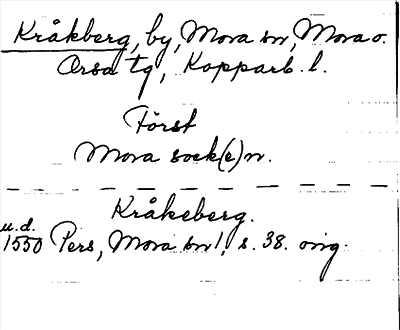 Kråkberg, by, Mora sn, Mora o.
Orsa tg, Kopparb. l.
Först
Mora sock(e)n.
Kråkeberg.
u.d.
1550 Pers, Mora sn!, s. 38. orig.